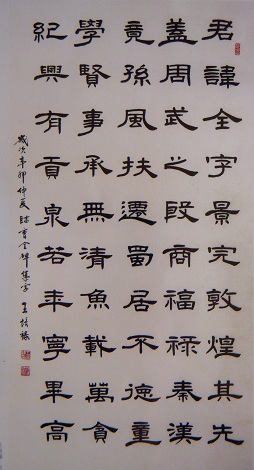 君諱全字景完敦煌其先
蓋周武之段商福祿秦漢
竟孫風扶遷蜀居不德童
學賢事承無清魚載萬貪
紀興有貢泉若年寧畢高
歲次辛卯仲夏 曹全碑集字 王